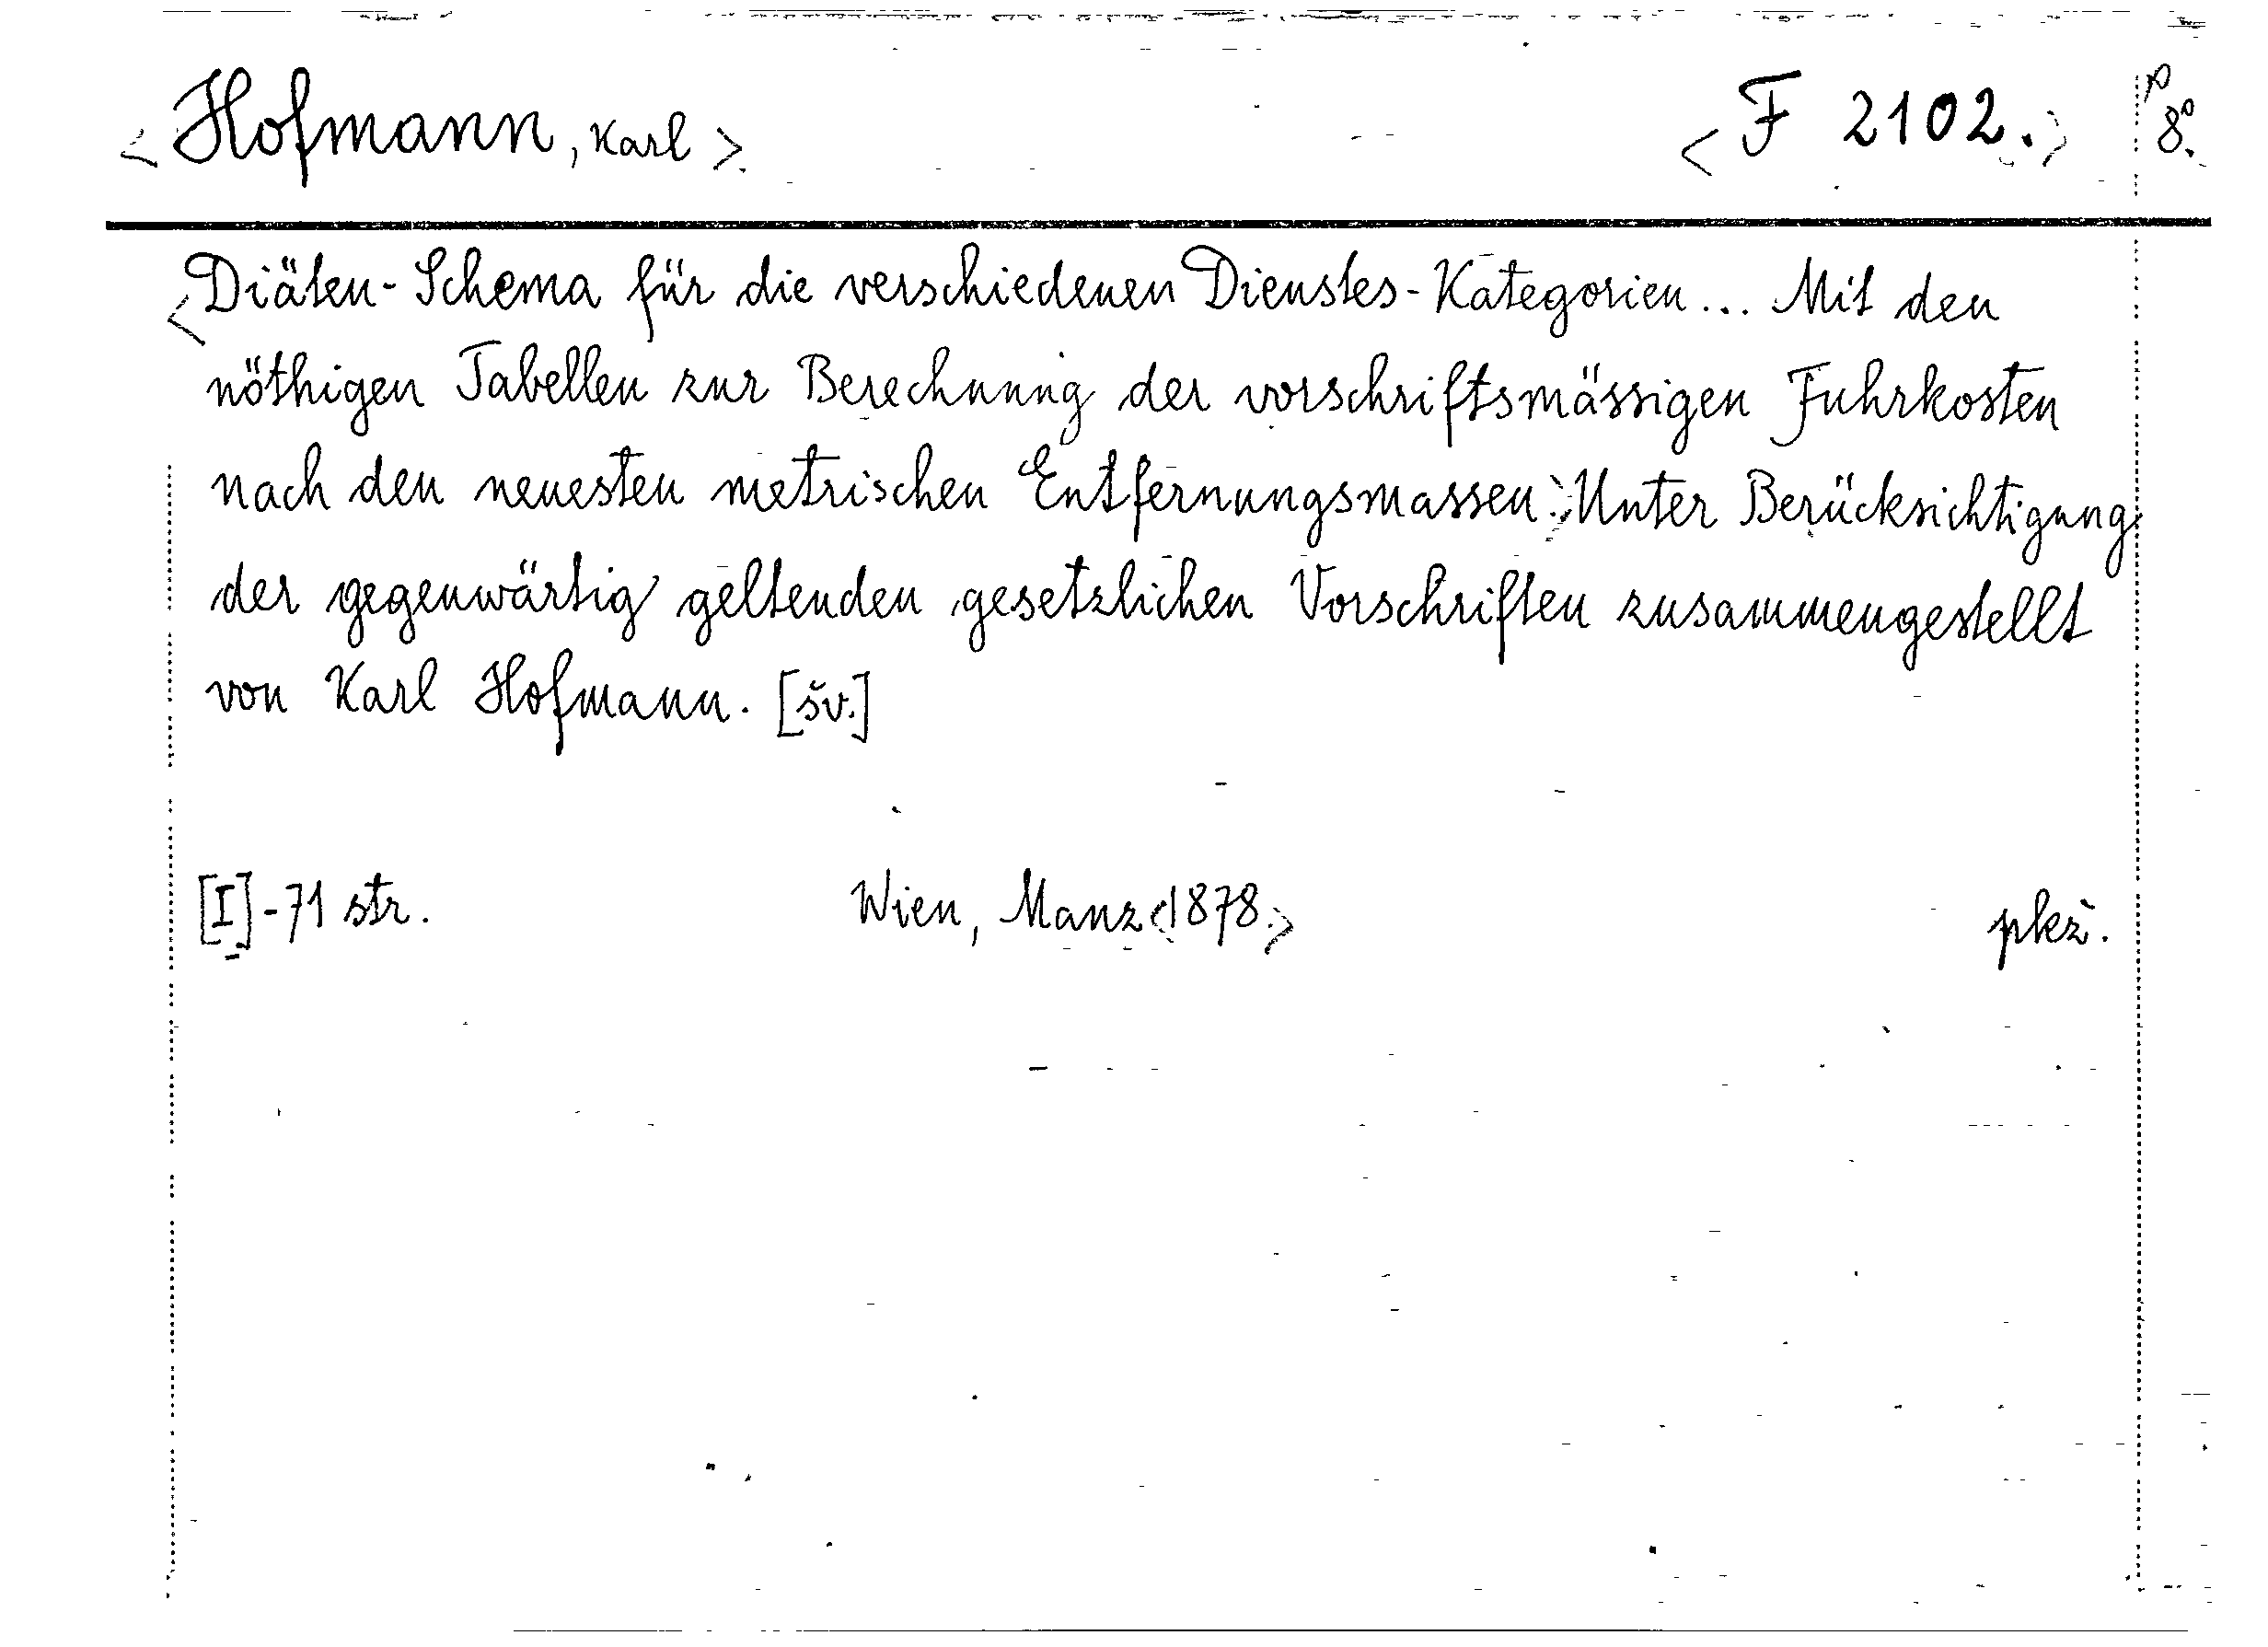 <Hofmann, Karl> <F 2102.> 8°.
<Diäten-Schema für die verschiedenen Dienstes-Kategorien... Mit den
nöthigen Tabellen zur Berechnung der vorschriftsmässigen Fuhrkosten
nach den neuesten metrischen Entfernungsmassen.> Unter Berücksichtigung
der gegenwärtig geltenden gesetzlichen Vorschriften zusammengestellt
von Karl Hofmann. [šv.]
[I]-71 str. Wien, Manz <1878.> pkž.